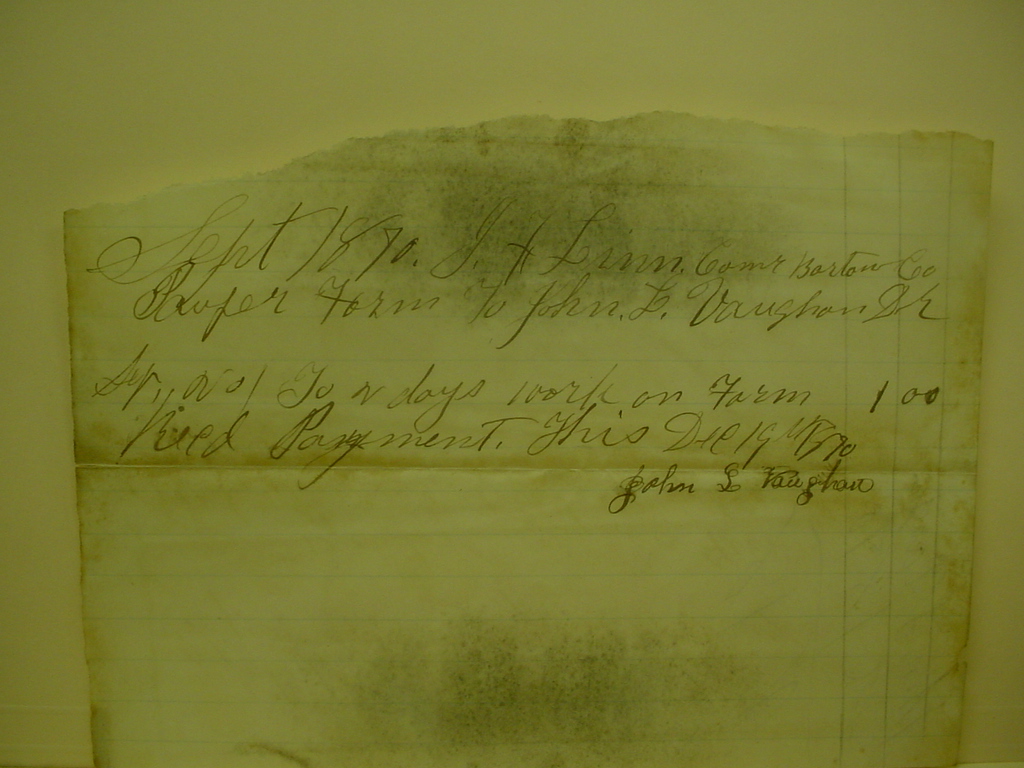 Sept 1870. J. H Linn. Comr Bartow Co
Pauper Farm To John. L. Vaughan Dr
To 2 days work on Farm 1 00
Recd Payment. This Dec 19th 1870
John L Vaughan